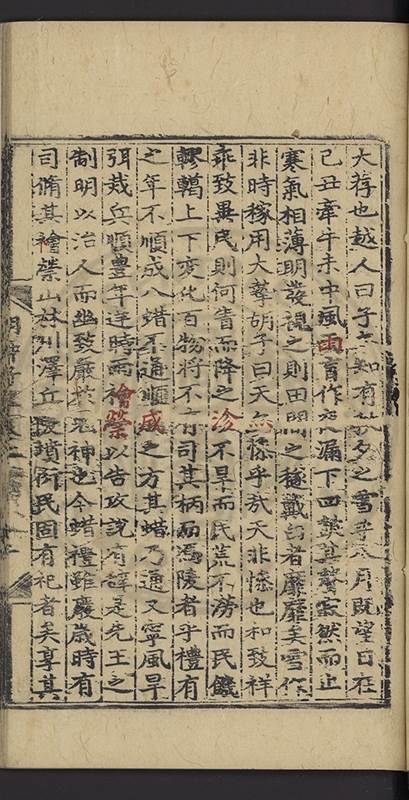 大荐也越人曰子亦知有於多之雪乎冬月既望日在
己丑牽牛未中風雨育作夜漏下四鼓其聲寂然而止
寒氣相薄明發視之則田間之稼戴白者靡靡矣雪作
非時稼用大摯胡子曰天無慘乎哉天非慘也和致祥
乖致異民則何眚而降之沴不旱而民荒不澇而民饑
轇轕上下変化百物將不有司其柄而馮陵者乎禮有
之年不順成八蜡不通順成之方其蜡乃通又寧風旱
弭烖兵順豊年逆時雨禬禜以告攻說有辭是先王之
制明以治人而幽致嚴於鬼神也今蜡禮雖廢歲時有
司脩其禬禜山林川澤丘陵墳衍民固有祀者矣享其